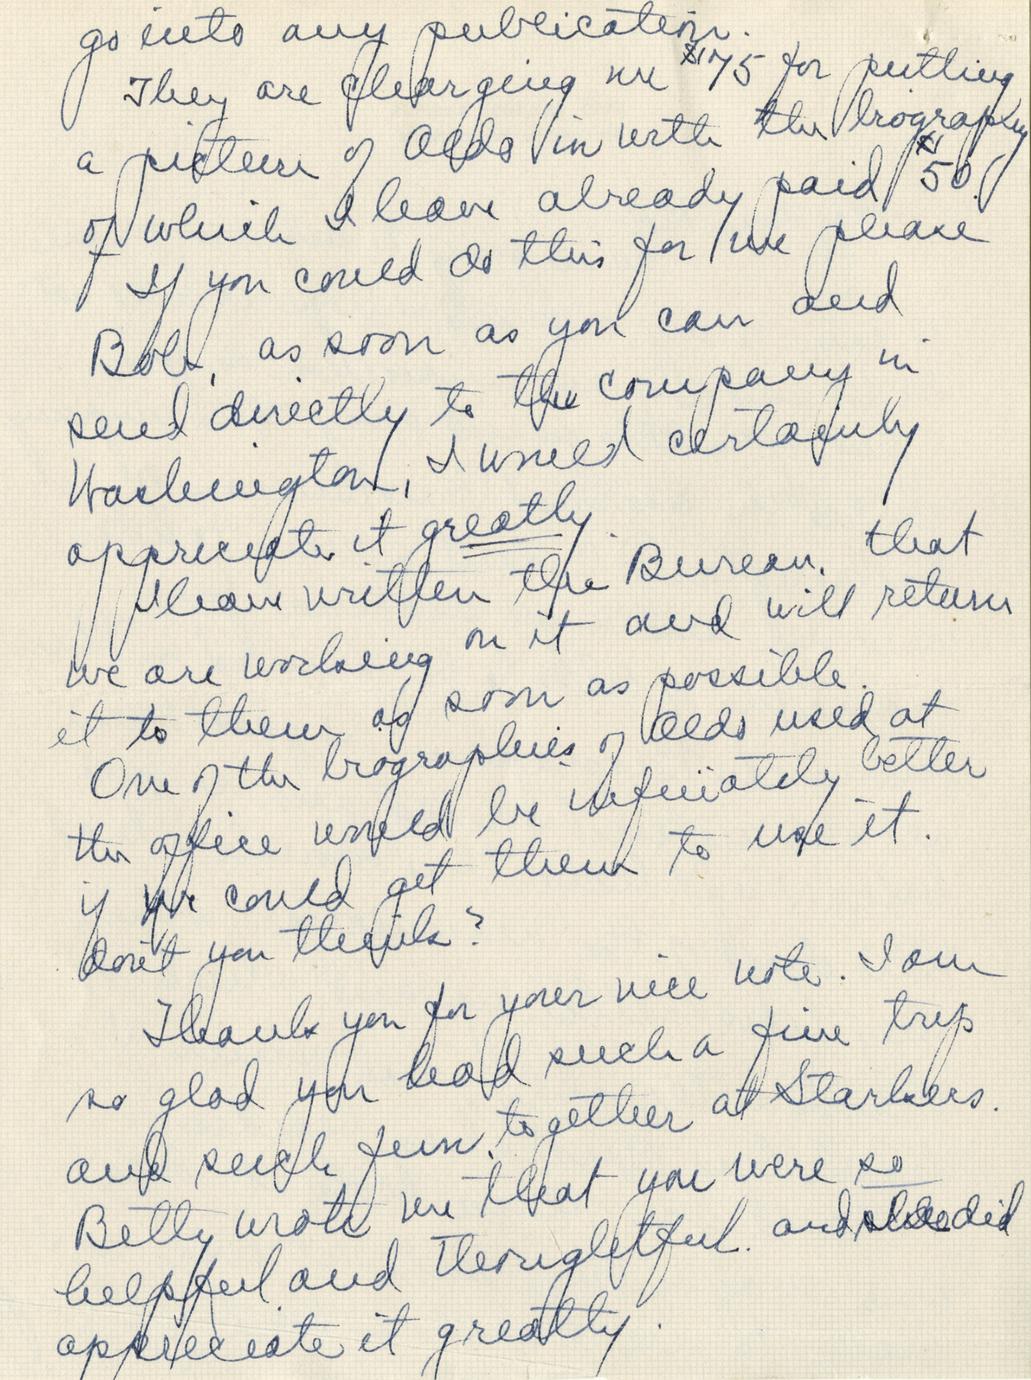 go into any publication.
They are charging me $75 for putting
a picture of Olds in with the biography
of which I have already paid $50.
If you could do this for me please
Bob, as soon as you can and
send directly to the company in
Washington, I would certainly
appreciate it greatly.
I have written the Bureau, that
we are working on it and will return
it to them as soon as possible.
One of the biographies of Olds used at
the office would be infinitely better
if we could get them to use it.
don't you think?
Thank you for your nice note. I am
so glad you had such a fine trip
and such fun together at Starkers.
Betty wrote me that you were so
helpful and thoughtful. and she did
appreciate it greatly.